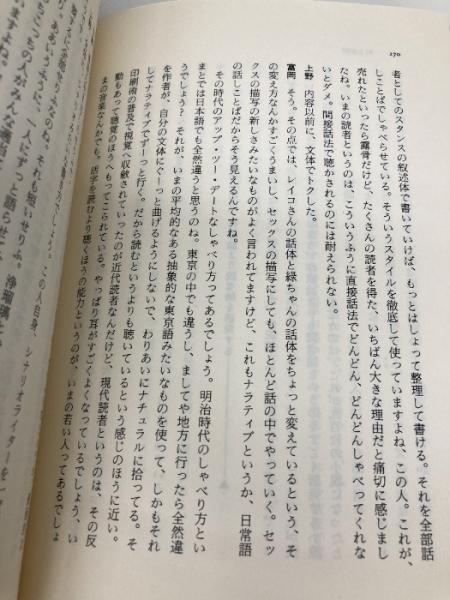 170
者としてのスタンスの叙述体で書いていけば、もっとはしょって整理して書ける。それを全部話
しことばでしゃべらせている。そういうスタイルを徹底して使っていますよね、この人。これが、
売れたといったら露骨だけど、たくさんの読者を得た、いちばん大きな理由だと痛切に感じまし
たね。いまの読者というのは、こういうふうに直接話法でどんどん、どんどんしゃべってくれな
いとダメ。間接話法で聴かされるのには耐えられない。
上野　内容以前に、文体でトクした。
富岡　そう。その点では、レイコさんの話体と緑ちゃんの話体をちょっと変えているという、そ
の変え方なんかすごくうまいし、セックスの描写にしても、ほとんど話の中でやっていく。セッ
クスの描写の新しさみたいなものがよく言われてますけど、これもナラティブというか、日常語
の話しことばだからそう見えるんですね。
その時代のアップ・ツー・デートなしゃべり方ってあるでしょう。明治時代のしゃべり方とい
まとでは日本語でも全然違うと思うのね。東京の中でも違うし、ましてや地方に行ったら全然違
うでしょう？　それが、いまの平均的なある抽象的な東京語みたいなものを使って、しかもそれ
を作者が、自分の文体にぐーっと曲げるようにしないで、わりあいにナチュラルに拾ってる。そ
してナラティブでずーっと行く。だから読むというよりも聴いているという感じのほうに近い。
印刷術の普及で視覚へ収斂されていったのが近代読者なんだけど、現代読者というのは、その反
動もあって聴覚のほうへもってこられている。やっぱり耳がすごくよくなっているでしょう、い
まの音楽なんかでも。活字を読むより聴くほうの能力というのが、いまの若い人ってあるでしょ
この人自身、シナリオライターを
れも短いせりふ。
にずっと語らせ
浄瑠璃